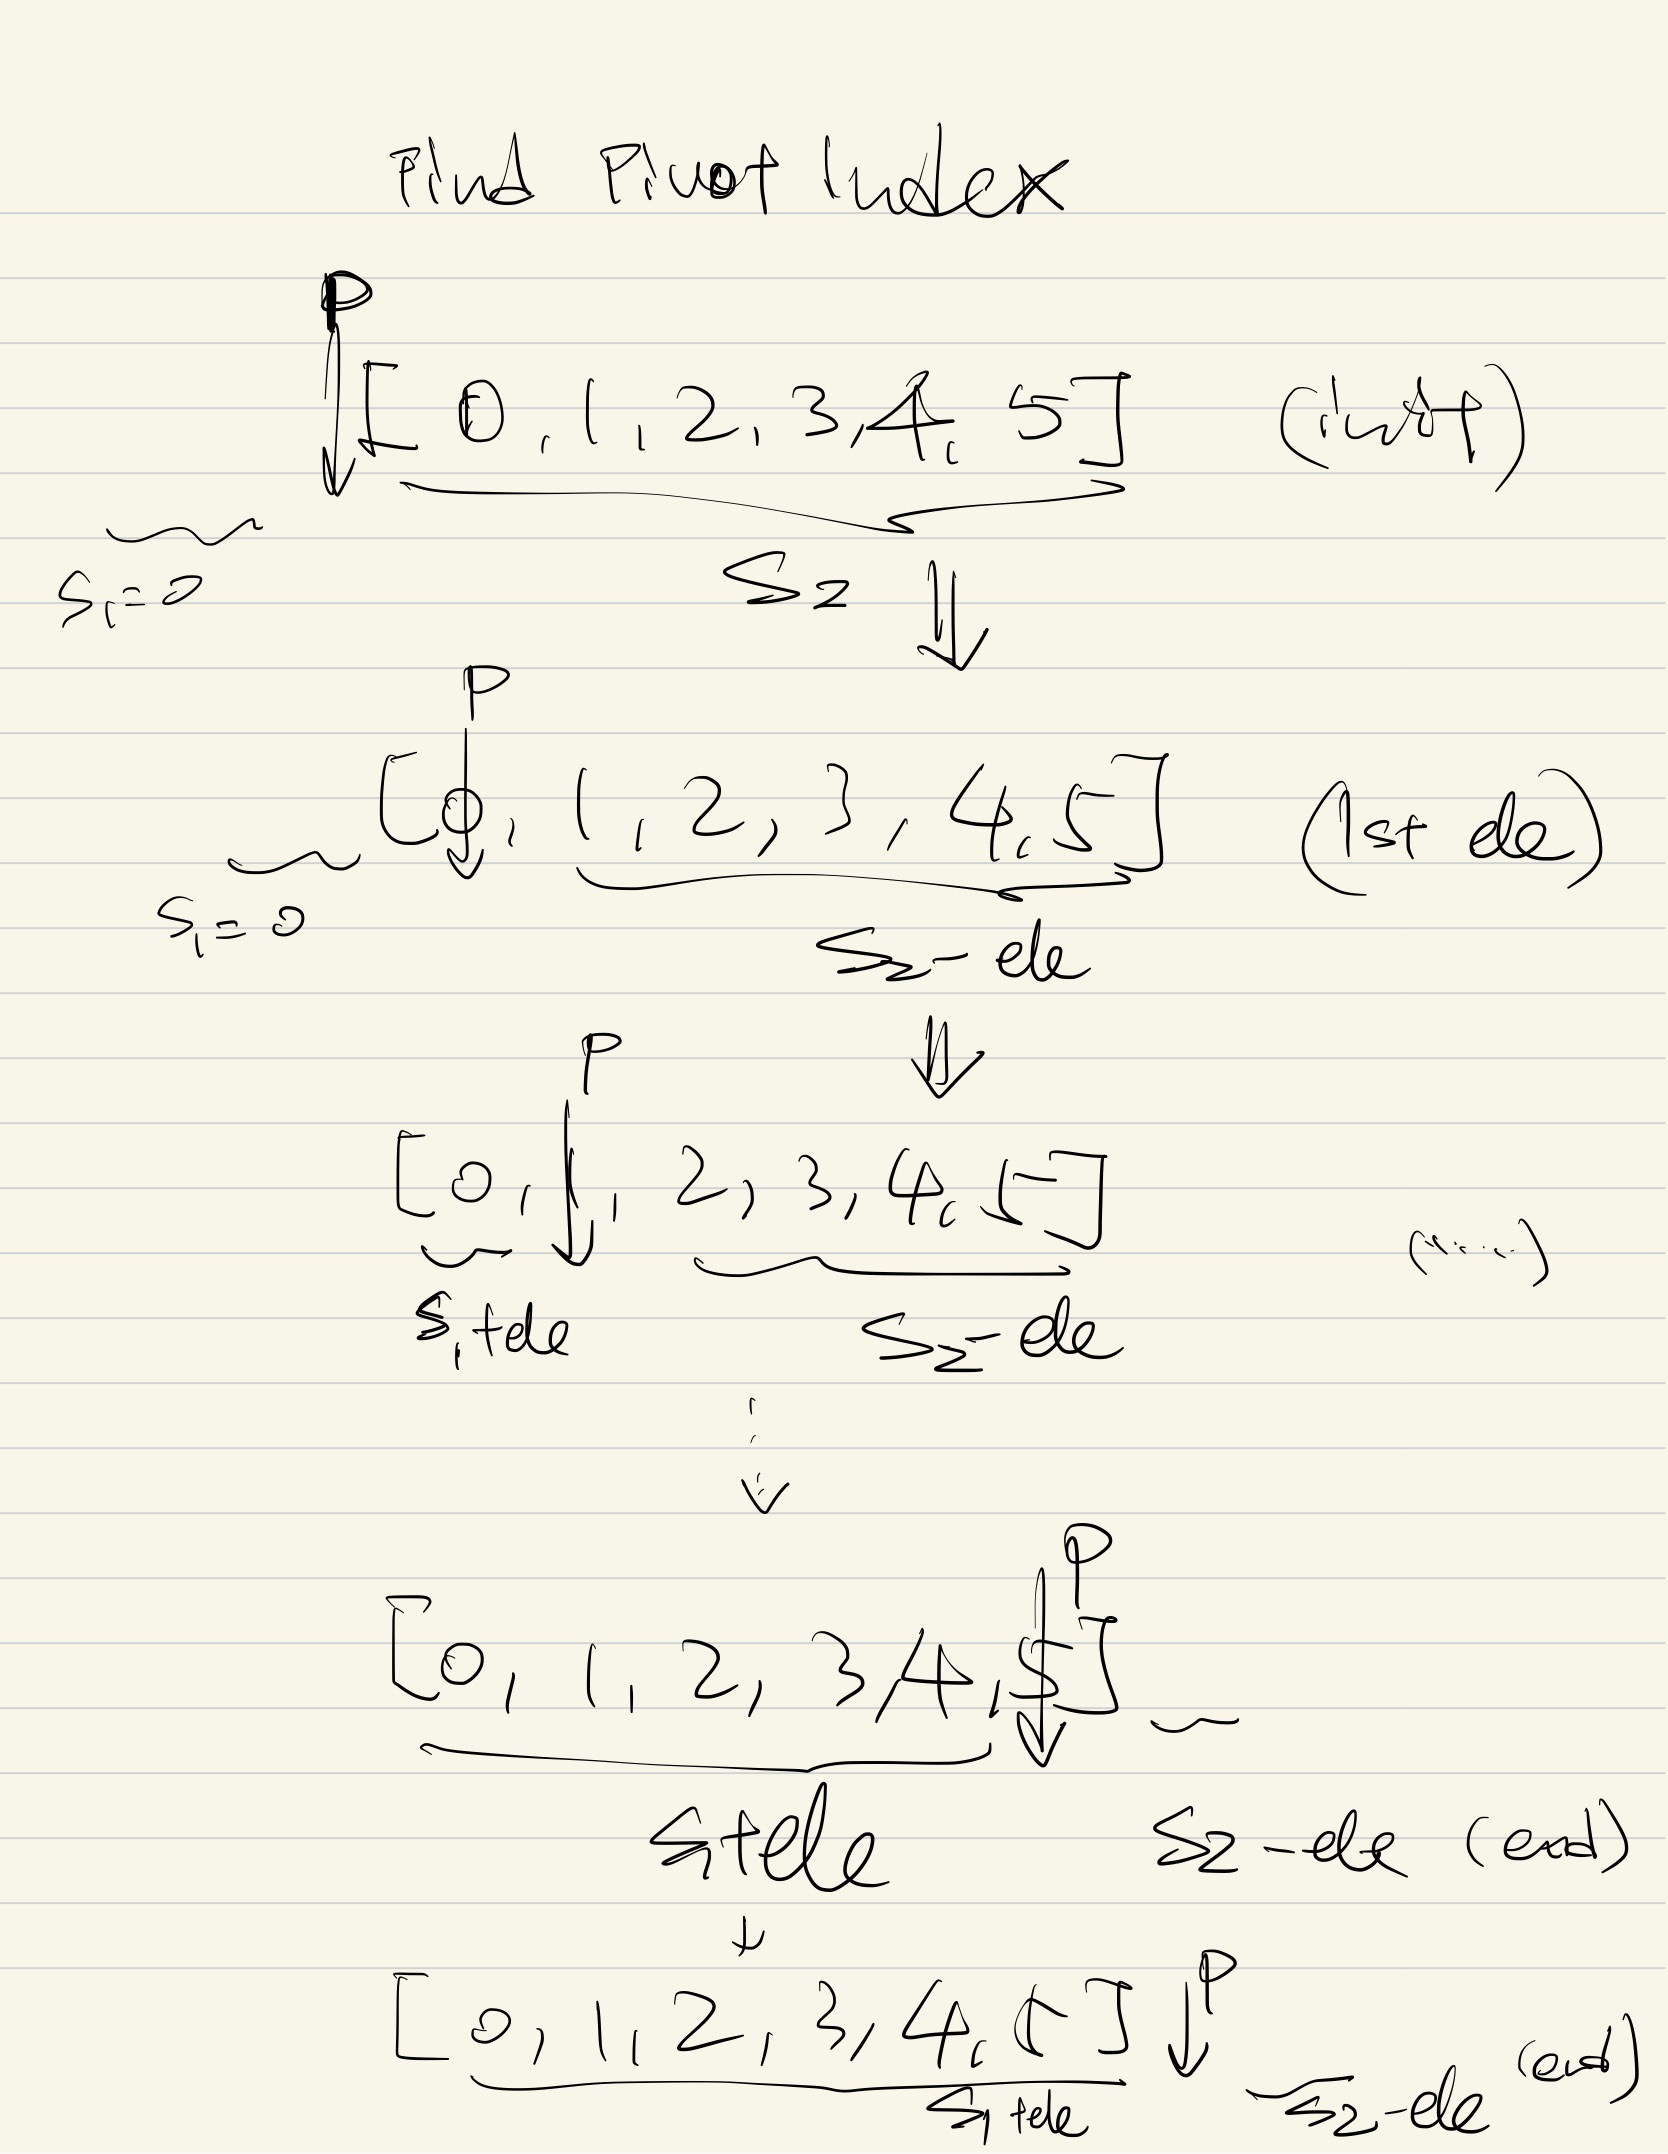 Find Pivot Index
P
[ 0, 1, 2, 3, 4, 5] (init)
S1=0 S2
P
[0, 1, 2, 3, 4, 5] (1st ele)
S1=0 S2-ele
P
[0, 1, 2, 3, 4, 5] (......)
S1+ele S2-ele
P
[0, 1, 2, 3, 4, 5]
S1+ele S2-ele (end)
P
[0, 1, 2, 3, 4, 5]
S1+ele S2-ele (end)